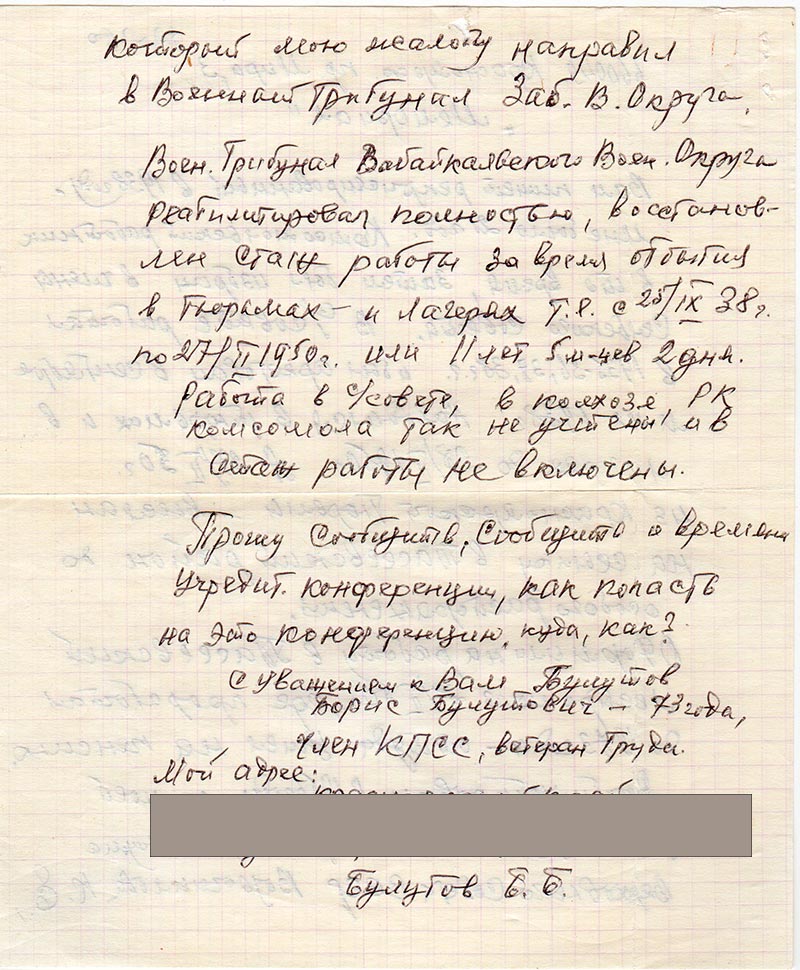 который мою жалобу направил
в Военный Трибунал Заб. В. Округа.
Воен. Трибунал Забайкальского Воен. Округа
реабилитировал полностью, восстанов-
лен стаж работы за время отбытия
в тюрьмах - и лагерях т.е. с 25/IX 38г.
по 27/II 1950г. или 11 лет 5 м-цев 2 дня.
Работа в с/совете, в колхозе, РК
комсомола так не учтены и в
стаж работы не включены.
Прошу Сообщить, Сообщить о времени
учредит. конференции, как попасть
на это конференцию, куда, как?
С уважением к Вам Булутов
Борис Булутович - 73 года,
член КПСС, ветеран Труда.
Мой адрес:
Булутов Б. Б.